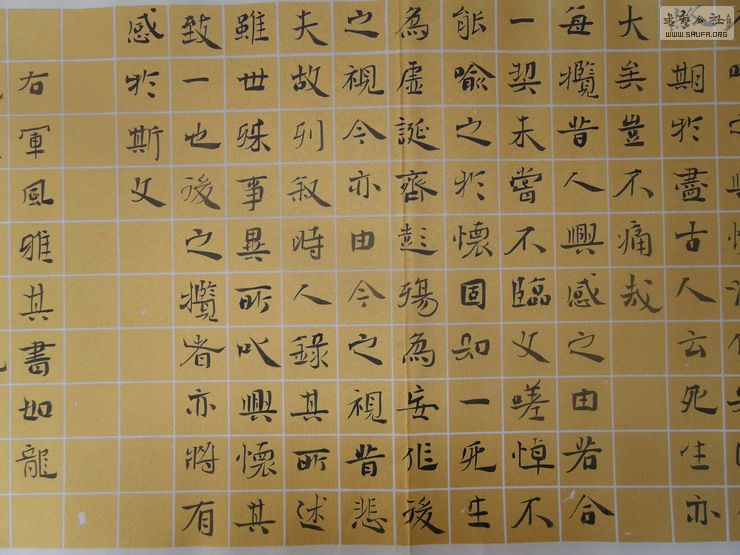 期於盡古人云死生亦
大矣豈不痛哉
每攬昔人興感之由若合
一契未嘗不臨文嗟悼不
能喻之於懷固知一死生
為虛誕齊彭殤為妄作後
之視今亦由今之視昔悲
夫故列叙時人錄其所述
雖世殊事異所以興懷其
致一也後之攬者亦將有
感於斯文
右軍風雅其書如龍
WWW.SHUFA.ORG